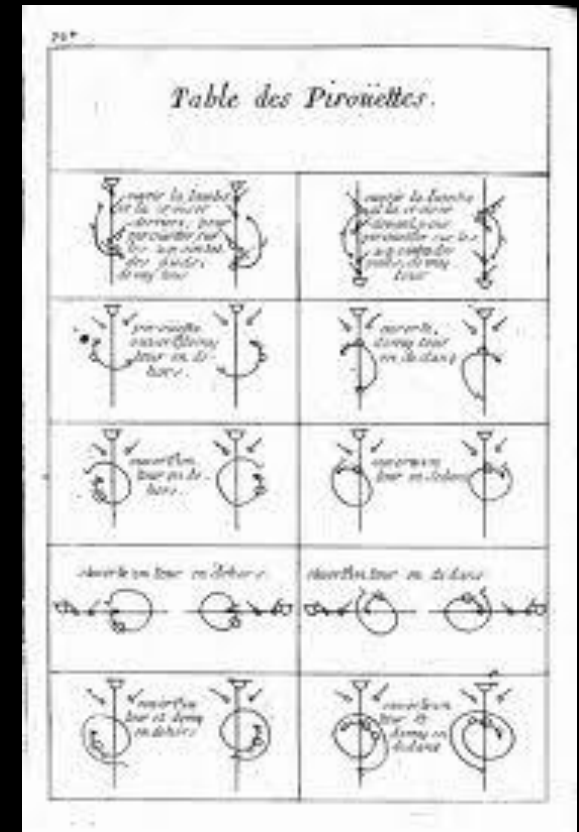 Table des Piroüettes.
ouvrir la Jambe
et la croiser
derriere, pour
pirouetter sur
les
des pieds,
demy tour
ouvrir la Jambe
et la croiser
devant, pour
pirouetter sur les
demy
tour
pirouette
ouverte demy
tour en de-
hors.
ouverte,
demy tour
en dedans
ouverte un
tour en de-
hors.
ouverte un
tour en dedans
ouverte un tour en dehors.
ouverte un tour en dedans
ouverte un
tour et demy
en dehors
ouverte un
tour et
demy en
dedans